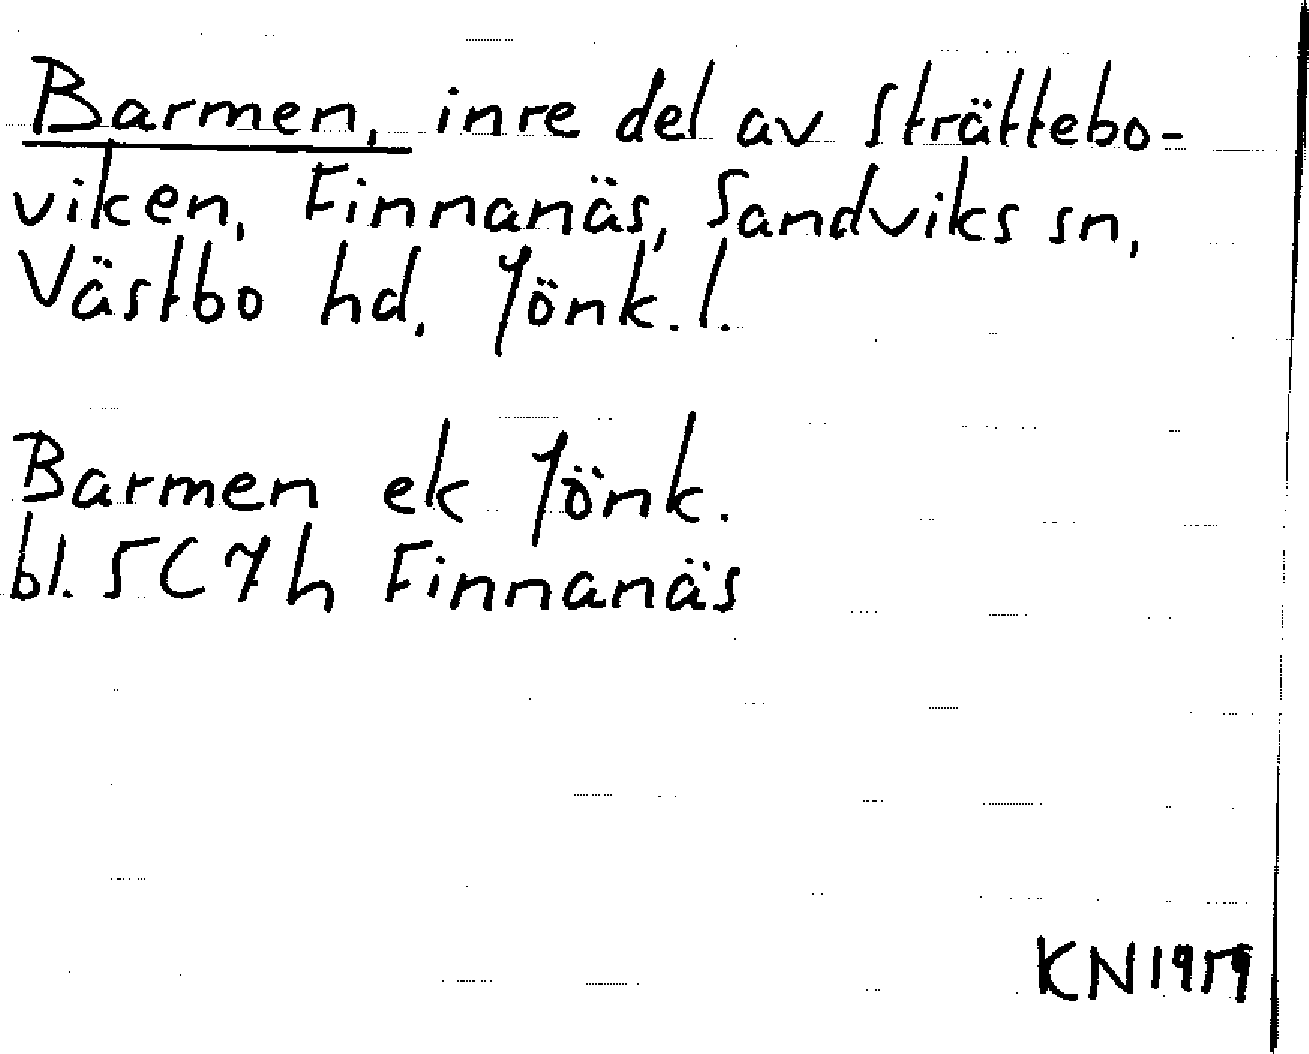 Barmen, inre del av Strättebo-
viken, Finnanäs, Sandviks sn,
Västbo hd. Jönk.l.
Barmen ek Jönk.
bl. 5C7h Finnanäs
KN1959